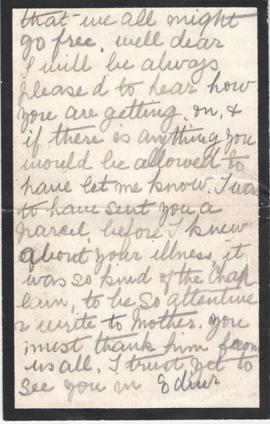 that we all might
go free. well dear
I will be always
pleased to hear how
you are getting on, &
if there is anything you
would be allowed to
have let me know. I was
to have sent you a
parcel before I knew
about your illness, it
was so kind of the Chap
lain, to be so attentive
& write to Mother. you
must thank him from
us all. I trust yet to
see you in Edinr